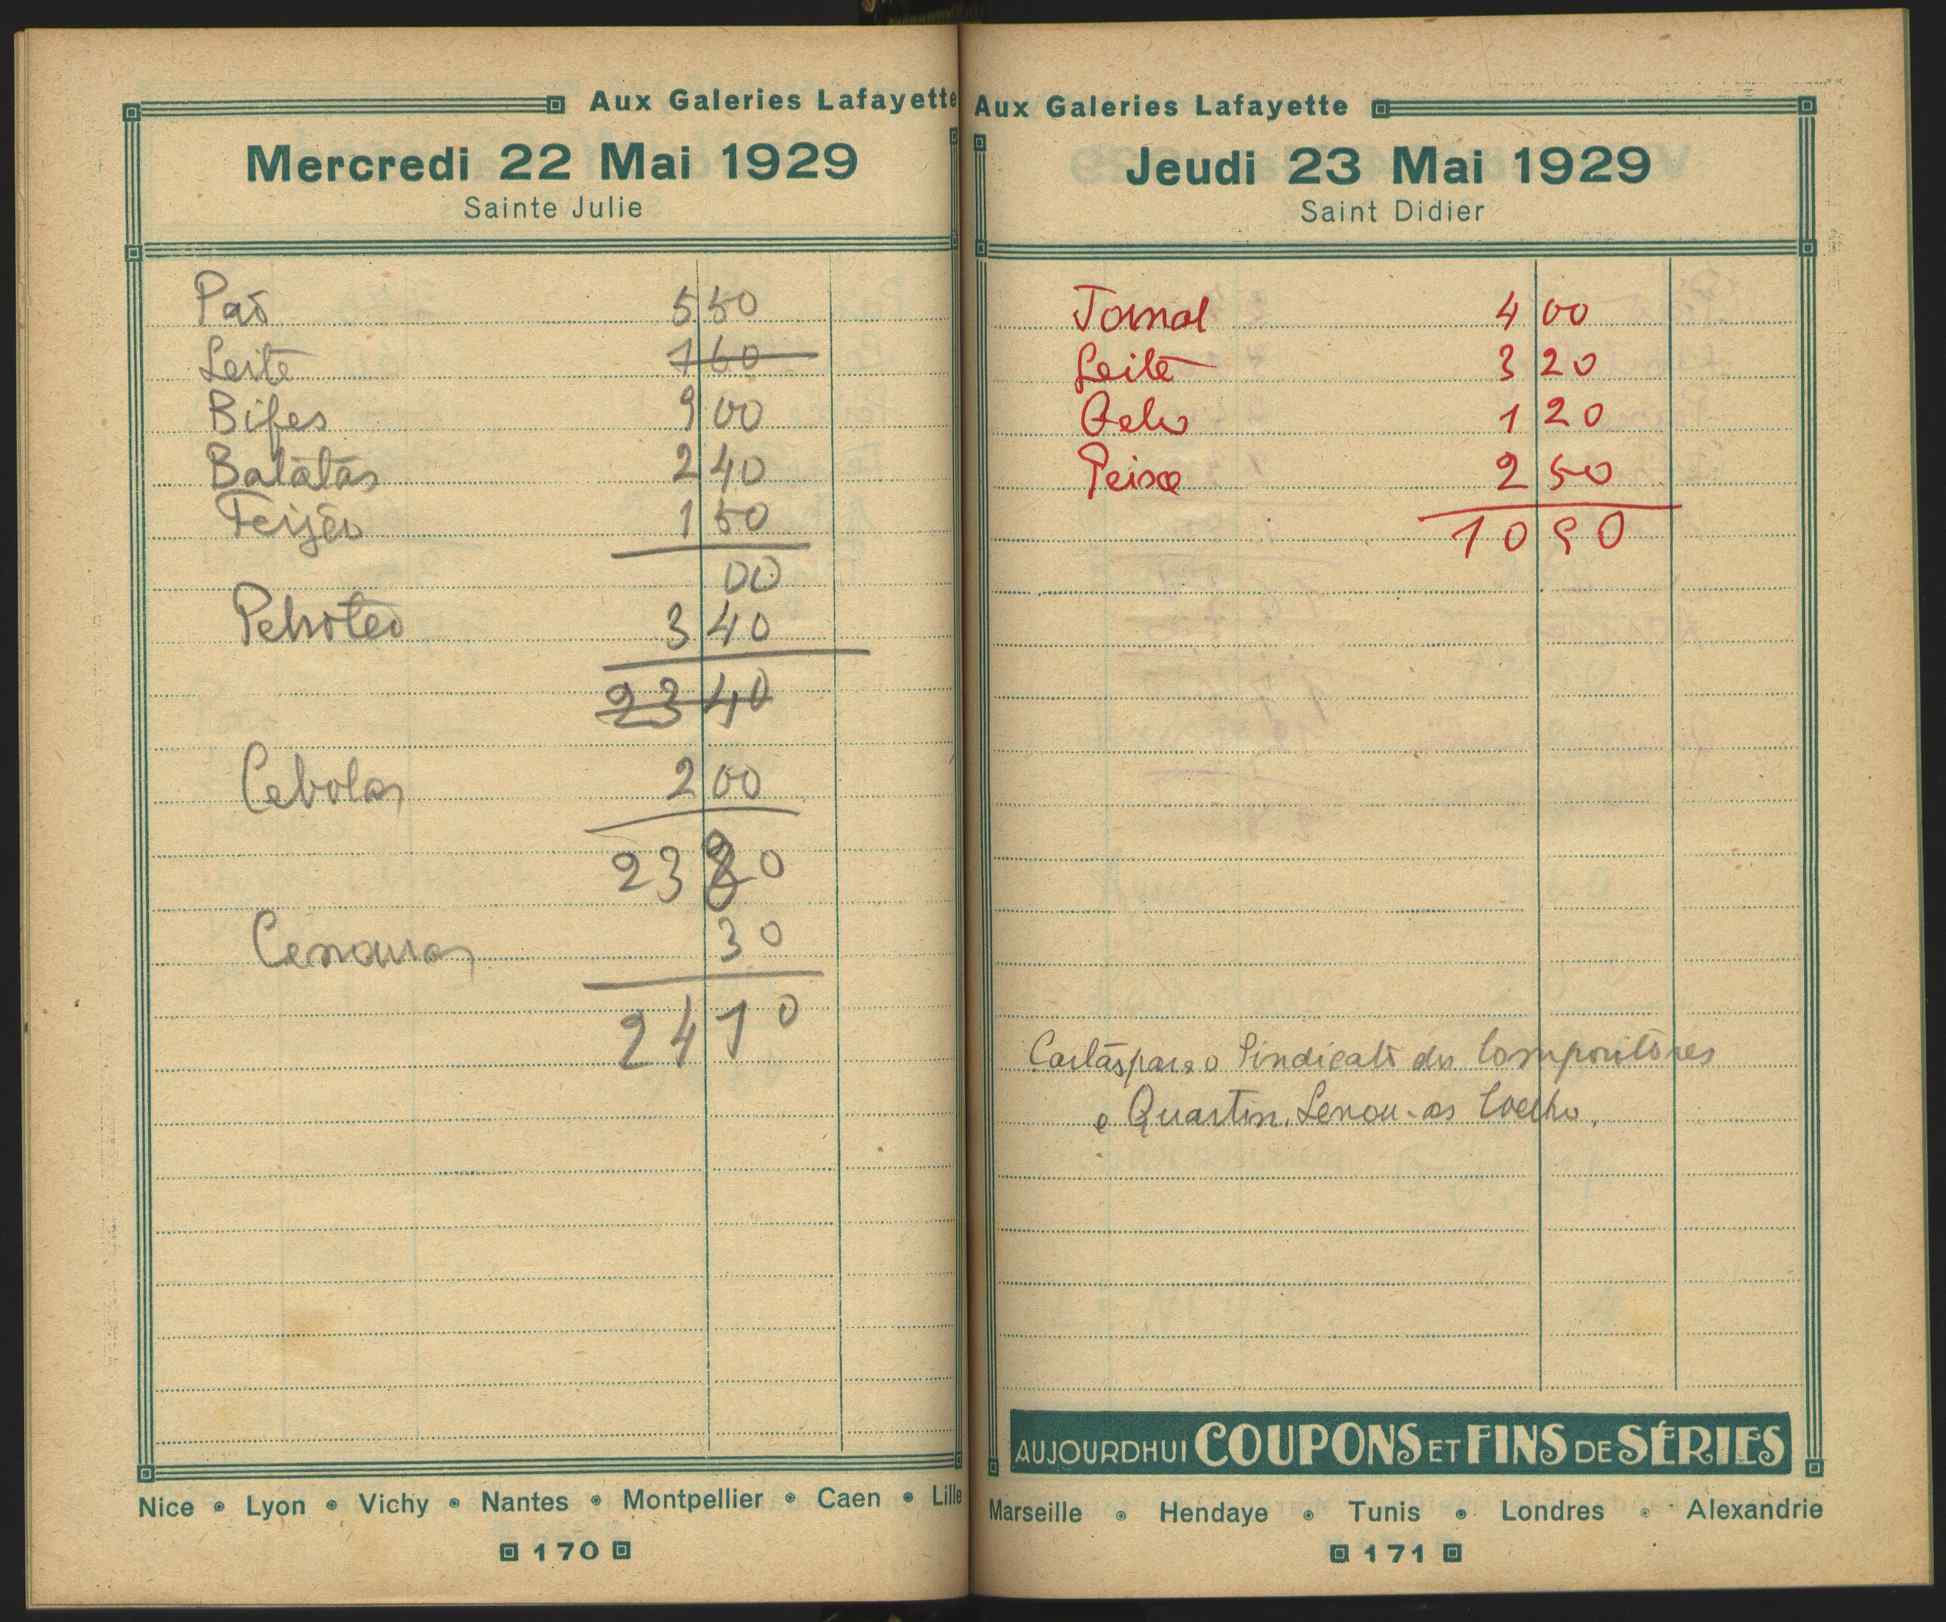 Aux Galeries Lafayette
Mercredi 22 Mai 1929
Sainte Julie
Paõ 5 50
Leite 1 60
Bifes 9 00
Batatas 2 40
Feijão 1 50
00
3 40
23 40
Cebolas 2 00
23 80
Cenouras 30
24 10
Nice • Lyon • Vichy • Nantes • Montpellier • Caen • Lille
170
Aux Galeries Lafayette
Jeudi 23 Mai 1929
Saint Didier
Jornal 4 00
Leite 3 20
Gelo 1 20
Peixe 2 50
10 90
Cartas para o Sindicato dos Compositores
e Quartin. Levou-as Coelho.
AUJOURDHUI COUPONS ET FINS DE SÉRIES
Marseille • Hendaye • Tunis • Londres • Alexandrie
171